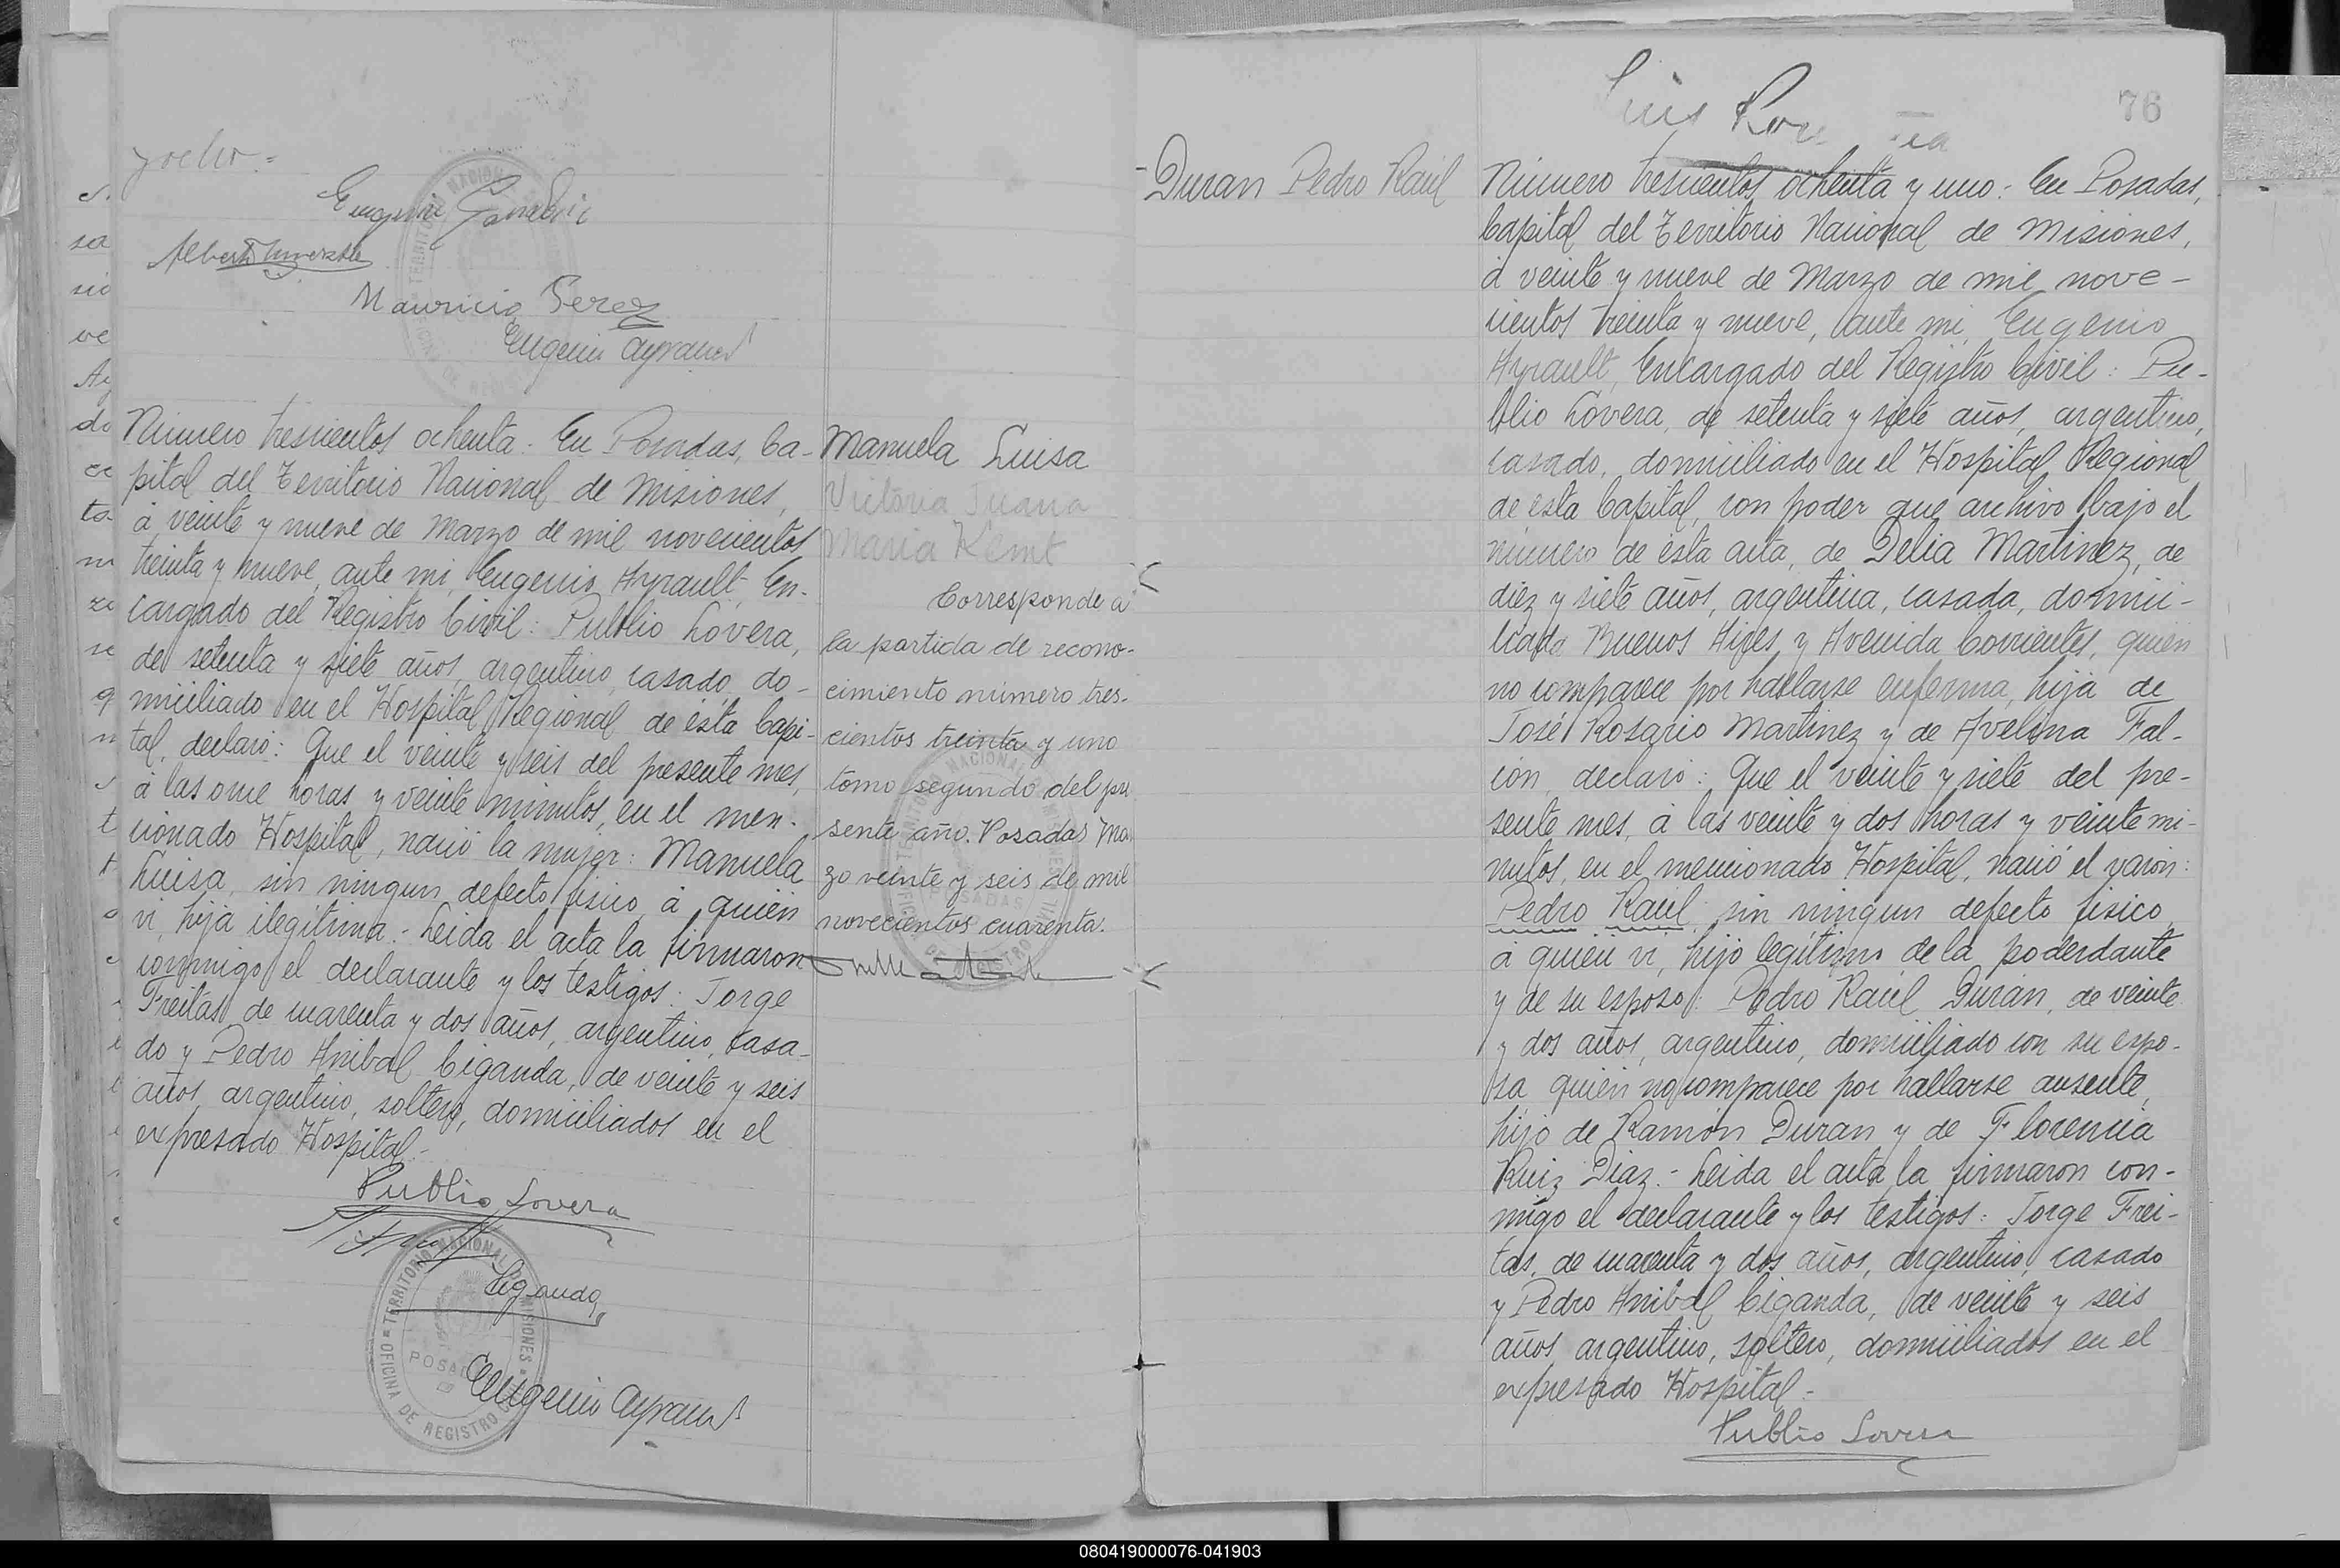 y ocho =
Mauricio Gerez
Eugenio Ayrault
Número trescientos ochenta: En Posadas, Ca-
pital del Territorio Nacional de Misiones,
á veinte y nueve de Marzo de mil novecientos
treinta y nueve, ante mi, Eugenio Ayrault, En-
cargado del Registro Civil: Publio Lovera,
de setenta y siete años, argentino, casado, do-
miciliado en el Hospital Regional de ésta Capi-
tal, declaró: Que el veinte y seis del presente mes,
á las once horas y veinte minutos, en el men-
cionado Hospital, nació la mujer: Manuela
Luisa, sin ningun defecto físico, á quien
vi, hija ilegítima.- Leida el acta la firmaron
conmigo el declarante y los testigos: Jorge
Freitas, de cuarenta y dos años, argentino, casa-
do y Pedro Anibal Ciganda, de veinte y seis
años, argentino, soltero, domiciliados en el
expresado Hospital.-
Publio Lovera
Ciganda
Eugenio Ayrault
TERRITORIO NACIONAL DE MISIONES
POSADAS
OFICINA DE REGISTRO CIVIL
Manuela Luisa
Victoria Juana
Maria Kemt
Corresponde a
la partida de recono-
cimiento número tres-
cientos treinta y uno
tomo segundo del pre
sente año. Posadas Mar
zo veinte y seis de mil
novecientos cuarenta.
76
Luis
Duran Pedro Raúl
Número trescientos ochenta y uno: En Posadas,
Capital del Territorio Nacional de Misiones,
á veinte y nueve de Marzo de mil nove-
cientos treinta y nueve, ante mi, Eugenio
Ayrault, Encargado del Registro Civil: Pu-
blio Lovera, de setenta y siete años, argentino,
casado, domiciliado en el Hospital Regional
de ésta Capital, con poder que archivo bajo el
número de ésta acta, de Delia Martinez, de
diez y siete años, argentina, casada, domici-
liada Buenos Aires y Avenida Corrientes, quien
no comparece por hallarse enferma, hija de
José Rosario Martinez y de Avelina Fal-
cón, declaró: Que el veinte y siete del pre-
sente mes, á las veinte y dos horas y veinte mi-
nutos, en el mencionado Hospital, nació el varón:
Pedro Raúl, sin ningun defecto físico,
á quien vi, hijo legítimo de la poderdante
y de su esposo: Pedro Raúl Durán, de veinte
y dos años, argentino, domiciliado con su espo-
sa quien no comparece por hallarse ausente,
hijo de Ramón Duran y de Florencia
Ruiz Diaz.- Leida el acta la firmaron con-
migo el declarante y los testigos: Jorge Frei-
tas, de cuarenta y dos años, argentino, casado
y Pedro Anibal Ciganda, de veinte y seis
años, argentino, soltero, domiciliados en el
expresado Hospital.-
Publio Lovera
080419000076-041903